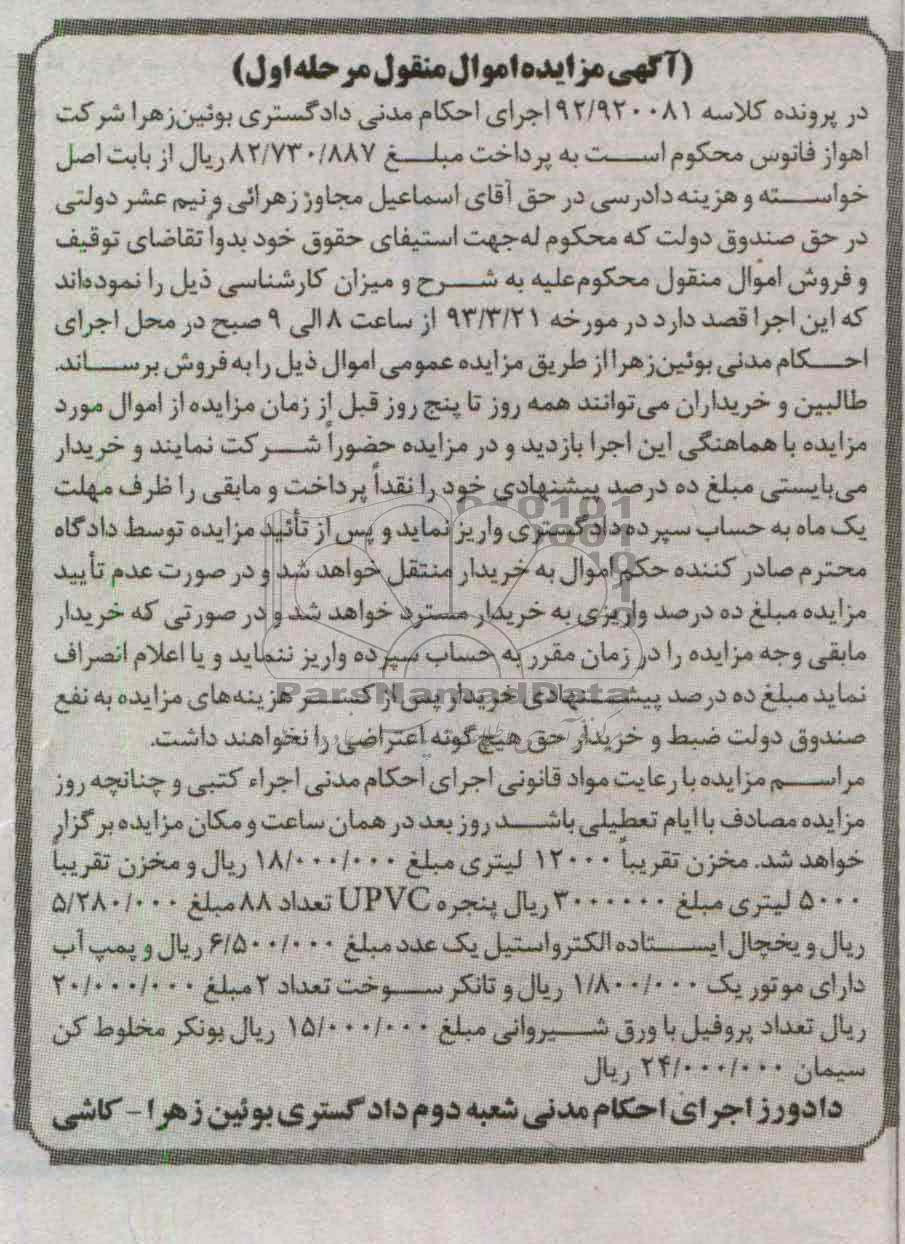 (آگهی مزایده اموال منقول مرحله اول)
در پرونده کلاسه ۹۲/۹۲۰۰۸۱ اجرای احکام مدنی دادگستری بوئین‌زهرا شرکت
اهواز فانوس محکوم است به پرداخت مبلغ ۸۲/۷۳۰/۸۸۷ ریال از بابت اصل
خواسته و هزینه دادرسی در حق آقای اسماعیل مجاوز زهرائی و نیم عشر دولتی
در حق صندوق دولت که محکوم له‌جهت استیفای حقوق خود بدواً تقاضای توقیف
و فروش اموال منقول محکوم‌علیه به شرح و میزان کارشناسی ذیل را نموده‌اند
که این اجرا قصد دارد در مورخه ۹۳/۳/۲۱ از ساعت ۸ الی ۹ صبح در محل اجرای
احکام مدنی بوئین‌زهرا از طریق مزایده عمومی اموال ذیل را به فروش برساند.
طالبین و خریداران می‌توانند همه روز تا پنج روز قبل از زمان مزایده از اموال مورد
مزایده با هماهنگی این اجرا بازدید و در مزایده حضوراً شرکت نمایند و خریدار
می‌بایستی مبلغ ده درصد پیشنهادی خود را نقداً پرداخت و مابقی را ظرف مهلت
یک ماه به حساب سپرده دادگستری واریز نماید و پس از تأئید مزایده توسط دادگاه
محترم صادر کننده حکم اموال به خریدار منتقل خواهد شد و در صورت عدم تأیید
مزایده مبلغ ده درصد واریزی به خریدار مسترد خواهد شد و در صورتی که خریدار
مابقی وجه مزایده را در زمان مقرر به حساب سپرده واریز ننماید و یا اعلام انصراف
نماید مبلغ ده درصد پیشنهادی خریدار پس از کسر هزینه‌های مزایده به نفع
صندوق دولت ضبط و خریدار حق هیچ گونه اعتراضی را نخواهند داشت.
مراسم مزایده با رعایت مواد قانونی اجرای احکام مدنی اجراء کتبی و چنانچه روز
مزایده مصادف با ایام تعطیلی باشد روز بعد در همان ساعت و مکان مزایده برگزار
خواهد شد. مخزن تقریباً ۱۲۰۰۰ لیتری مبلغ ۱۸/۰۰۰/۰۰۰ ریال و مخزن تقریباً
۵۰۰۰ لیتری مبلغ ۳۰۰۰۰۰۰ ریال پنجره UPVC تعداد ۸۸ مبلغ ۵/۲۸۰/۰۰۰
ریال و یخچال ایستاده الکترواستیل یک عدد مبلغ ۶/۵۰۰/۰۰۰ ریال و پمپ آب
دارای موتور یک ۱/۸۰۰/۰۰۰ ریال و تانکر سوخت تعداد ۲ مبلغ ۲۰/۰۰۰/۰۰۰
ریال تعداد پروفیل با ورق شیروانی مبلغ ۱۵/۰۰۰/۰۰۰ ریال بونکر مخلوط کن
سیمان ۲۴/۰۰۰/۰۰۰ ریال
دادورز اجرای احکام مدنی شعبه دوم دادگستری بوئین زهرا - کاشی
ParsNamadData